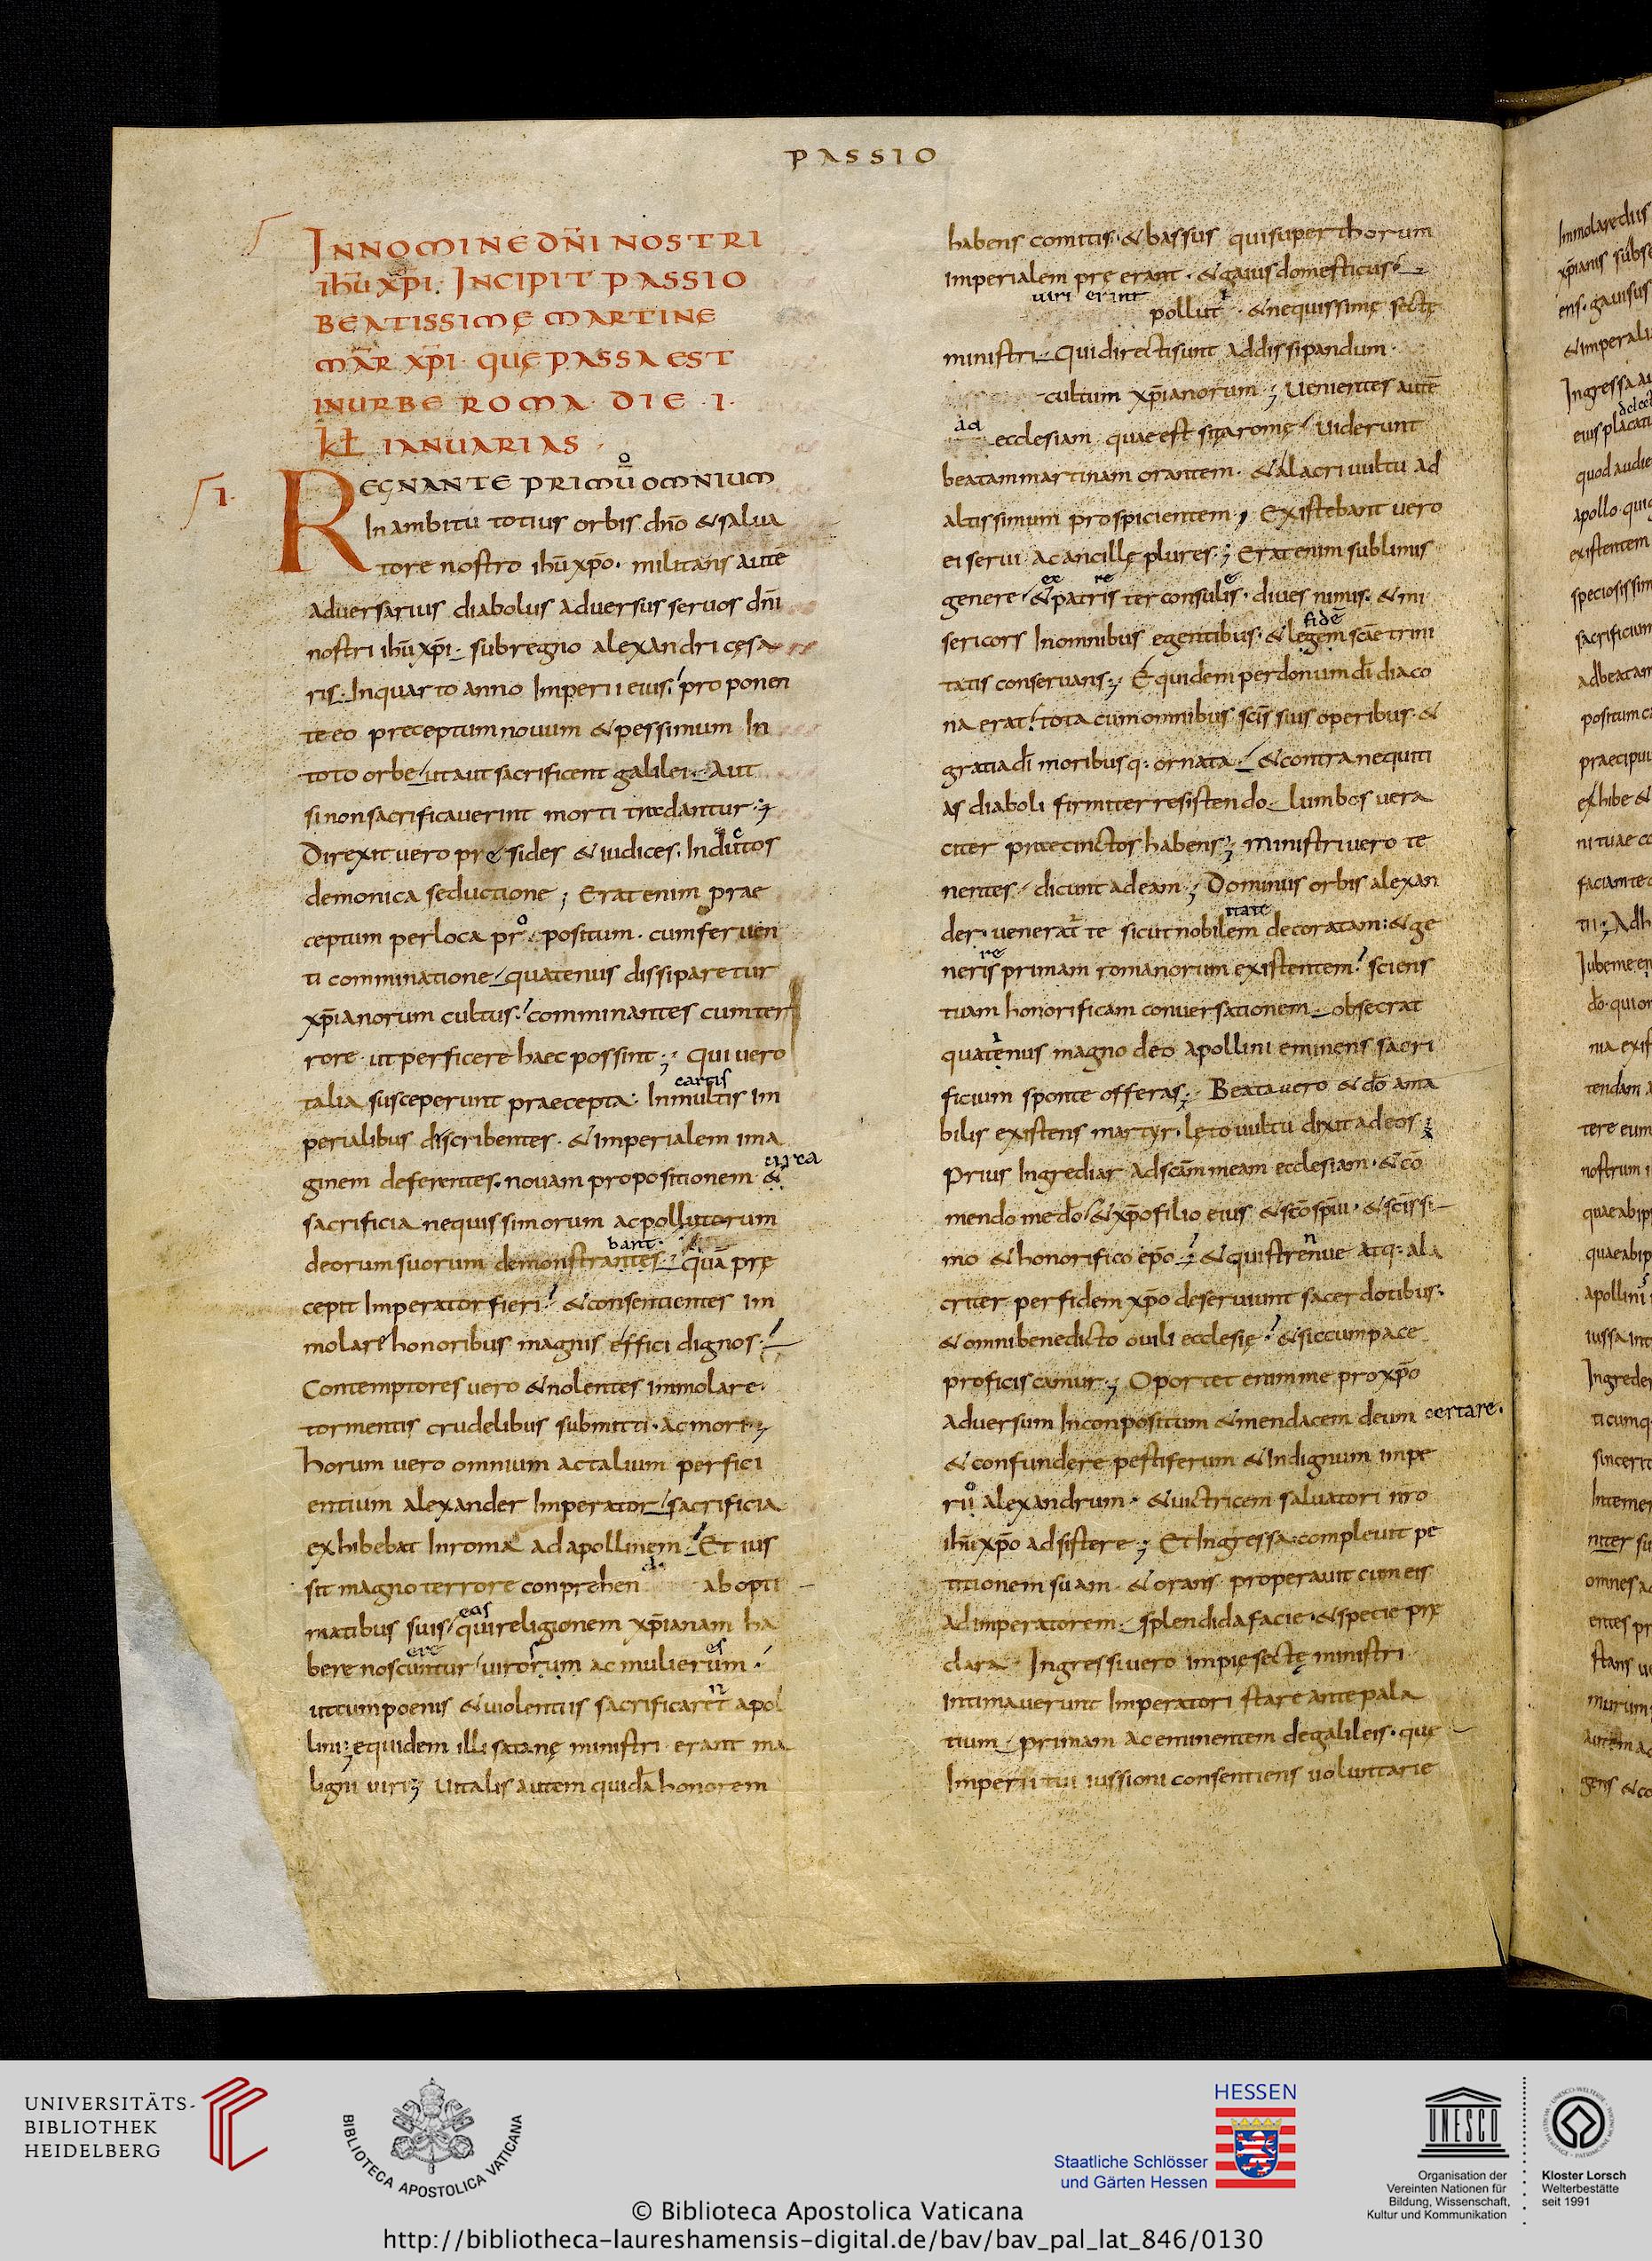 PASSIO
IN NOMINE DN̄I NOSTRI
IHŪ XP̄I. INCIPIT PASSIO
BEATISSIMĘ MARTINĘ
MAR̄ XP̄I. QUĘ PASSA EST
IN URBE ROMA. DIE .I.
KL̄ IANUARIAS.
I.
REGNANTE PRIMŪ OMNIUM
In ambitu totius orbis dnō & salua
tore nostro ihū xp̄o. militans autē
aduersarius diabolus aduersus seruos dn̄i
nostri ihū xp̄i. sub regno alexandri cęsa
ris. In quarto anno Imperii eius. proponen
te eo preceptum nouum & pessimum In
toto orbe ut aut sacrificent galilei. Aut
si non sacrificauerint morti tradantur.
Direxit uero presides & iudices. Inductos
demonica seductione; Erat enim prae
ceptum per loca pro positum. cum feruen
ti comminatione quatenus dissiparetur
xp̄ianorum cultus. comminantes cum ter
rore ut perficere haec possint; Qui uero
cartis
talia susceperunt praecepta. In multis im
perialibus discribentes. & imperialem ima
circa
ginem deferentes. nouam propositionem &
sacrificia nequissimorum ac pollutorum
bant
deorum suorum demonstrantes. quā prę
cepit Imperator fieri. & consentientes im
molare honoribus magnis effici dignos.
Contemptores uero & nolentes immolare.
tormentis crudelibus submitti. ac mori.
horum uero omnium ac talium perfici
entium alexander Imperator sacrificia
exhibebat In roma ad apollinem. Et ius
sit magno terrore conprehen ab opti
eas
matibus suis qui religionem xp̄ianam ha
ere es
bere noscuntur uirorum ac mulierum.
ut cum poenis & uiolentiis sacrificaret apol
lini; equidem illi satanę ministri erant ma
ligni uiri; Uitalis autem quidā honorem
habens comitis. & bassus qui super thorum
imperialem prę erant. & gaius domesticus
uiri erint
polluti. & nequissimę sectę
ministri. Qui directi sunt ad dissipandum.
cultum xp̄ianorum; Uenientes autē
ad ecclesiam quae est sita romę uiderunt
beatam martinam orantem. & alacri uultu ad
altissimum prospicientem; Existebant uero
ei serui ac ancillę plures; Erat enim sublimis
ex re e
genere & patris ter consulis. diues nimis. & mi
fidē
sericors In omnibus egentibus. & legem scāe trini
tatis conseruans; Equidem per donum dī diaco
na erat. tota cum omnibus scīs suis operibus. &
gratia dī moribusq: ornata. & contra nequiti
as diaboli firmiter resistendo. lumbos uera
citer praecinctos habens; Ministri uero te
nentes dicunt ad eam; Dominus orbis alexan
tate
der. uenerat te sicut nobilem decoratam: & ge
re
neris primam romanorum existentem. sciens
tuam honorificam conuersationem. obsecrat
quatenus magno deo apollini eminens sacri
ficium sponte offeras; Beata uero & dō ama
bilis existens martyr. lęto uultu dixit ad eos;
Prius Ingrediar ad scām meam ecclesiam. & cō
mendo me dō & xp̄o filio eius & scō spūi. & scīssi
mo & honorifico epō. & qui strennue atq: ala
criter per fidem xp̄o deseruiunt sacerdotibus.
& omni benedicto ouili ecclesię. & sic cum pace
proficiscamur; Oportet enim me pro xp̄o
aduersum Inconpositum & mendacem deum certare.
& confundere pestiferum & Indignum impe
riū alexandrum. & uictricem saluatori nr̄o
ihū xp̄o adsistere; Et Ingressa compleuit pe
titionem suam. & orans properauit cum eis
ad imperatorem. splendida facie. & specie prę
clara. Ingressi uero impię sectę ministri
intimauerunt Imperatori stare ante pala
tium primam ac eminentem de galileis. quę
Imperii tui iussioni consentiens uoluntarie
UNIVERSITÄTS-
BIBLIOTHEK
HEIDELBERG
BIBLIOTECA APOSTOLICA VATICANA
HESSEN
Staatliche Schlösser
und Gärten Hessen
UNESCO
Organisation der
Vereinten Nationen für
Bildung, Wissenschaft,
Kultur und Kommunikation
Kloster Lorsch
Welterbestätte
seit 1991
© Biblioteca Apostolica Vaticana
http://bibliotheca-laureshamensis-digital.de/bav/bav_pal_lat_846/0130